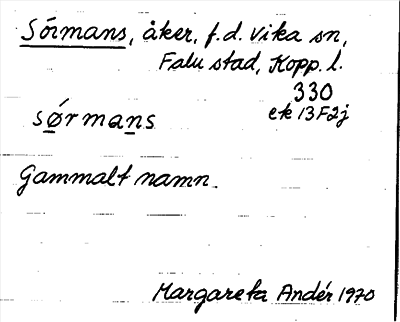 Sörmans, åker, f.d. Vika sn,
Falu stad, Kopp. l.
330
ek 13F2j
sǿrmans
Gammalt namn.
Margareta Andér 1970